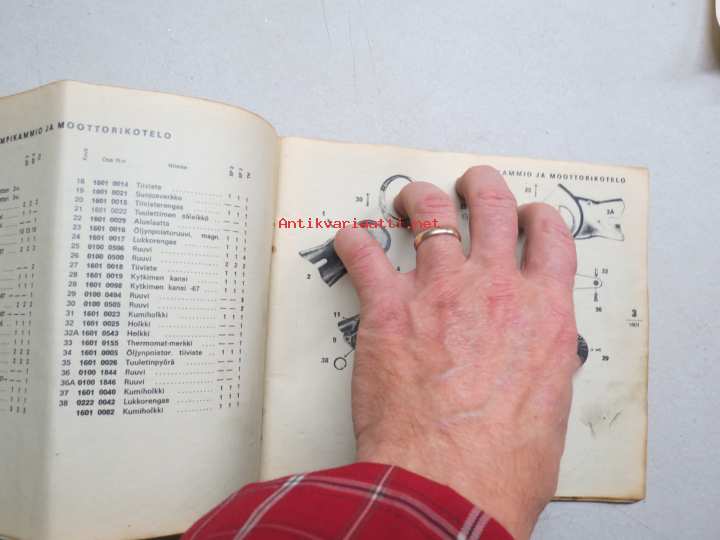 MPIKAMMIO JA MOOTTORIKOTELO
Osa N:o Nimike
18 1601 0014 Tiiviste
19 1601 0021 Suojaverkko
20 1601 0015 Tiivisterengas
21 1601 0022 Tuulettimen säleikkö
22 1601 0029 Aluslaatta
23 1601 0016 Öljynpoistoruuvi, magn.
24 1601 0017 Lukkorengas
25 0100 0506 Ruuvi
26 0100 0500 Ruuvi
27 1601 0018 Tiiviste
28 1601 0019 Kytkimen kansi
28 1601 0098 Kytkimen kansi -67
29 0100 0494 Ruuvi
30 0100 0505 Ruuvi
31 1601 0023 Kumiholkki
32 1601 0025 Holkki
32A 1601 0543 Holkki
33 1601 0155 Thermostat-merkki
34 1601 0005 Öljynpoistor. tiiviste
35 1601 0026 Tuuletinpyörä
36 0100 1844 Ruuvi
36A 0100 1846 Ruuvi
37 1601 0040 Kumiholkki
38 0222 0042 Lukkorengas
1601 0082 Kumiholkki
KAMMIO JA MOOTTORIKOTELO
30
23
1
3A
Antikvariaatti.net
2
4
33
36
3
1601
11
9
29
38